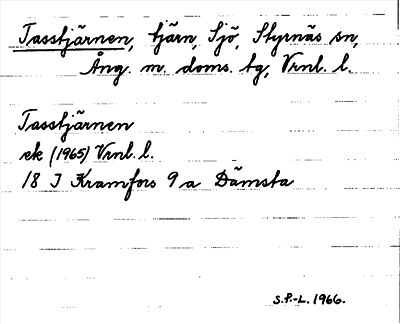 Tasstjärnen, tjärn, Sjö, Styrnäs sn,
Ång. m. doms. tg, Vrnl. l.
Tasstjärnen
ek (1965) Vrnl. l.
18 I Kramfors 9 a Dämsta
S.P.-L. 1966.